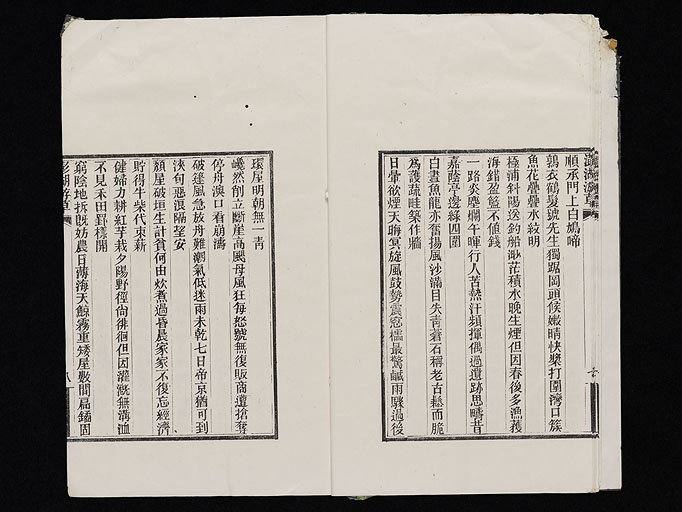 順承門上白鳩啼
鶉衣鶴髮號先生獨踞岡頭候嫩晴快槳打圍灣口簇
魚花疊疊水紋明
極浦斜陽送釣船渺茫積水晚生煙但因春後多漁獲
海錯盈籃不值錢
一路炎塵爛午暉行人苦熱汗頻揮偶過遺跡思疇昔
嘉蔭亭邊綠四圍
白晝魚龍亦奮揚風沙滿目失青蒼石稱老古鬆而脆
為護蔬畦築作牆
日暈欲煙天晦冥旋風鼓勢震窓櫺最驚鹹雨驟過後
環星明朝無一青
巉然削立斷崖高颶母風狂每怒號無復販商遭搶奪
停舟澳口看崩濤
破篷風急放舟難潮氣低迷雨未乾七日帝京猶可到
浹旬惡浪隔望安
頹屋破垣生計貧何由炊煮過昏晨家家不復忘經濟
貯得牛柴代束薪
健婦力耕紅芋栽夕陽野徑尙徘徊但因灌漑無溝洫
不見禾田罫㨾開
窮陰地拆旣妨農日薄海天鯨霧重矮屋數間扃鐍固
澎湖游草
八